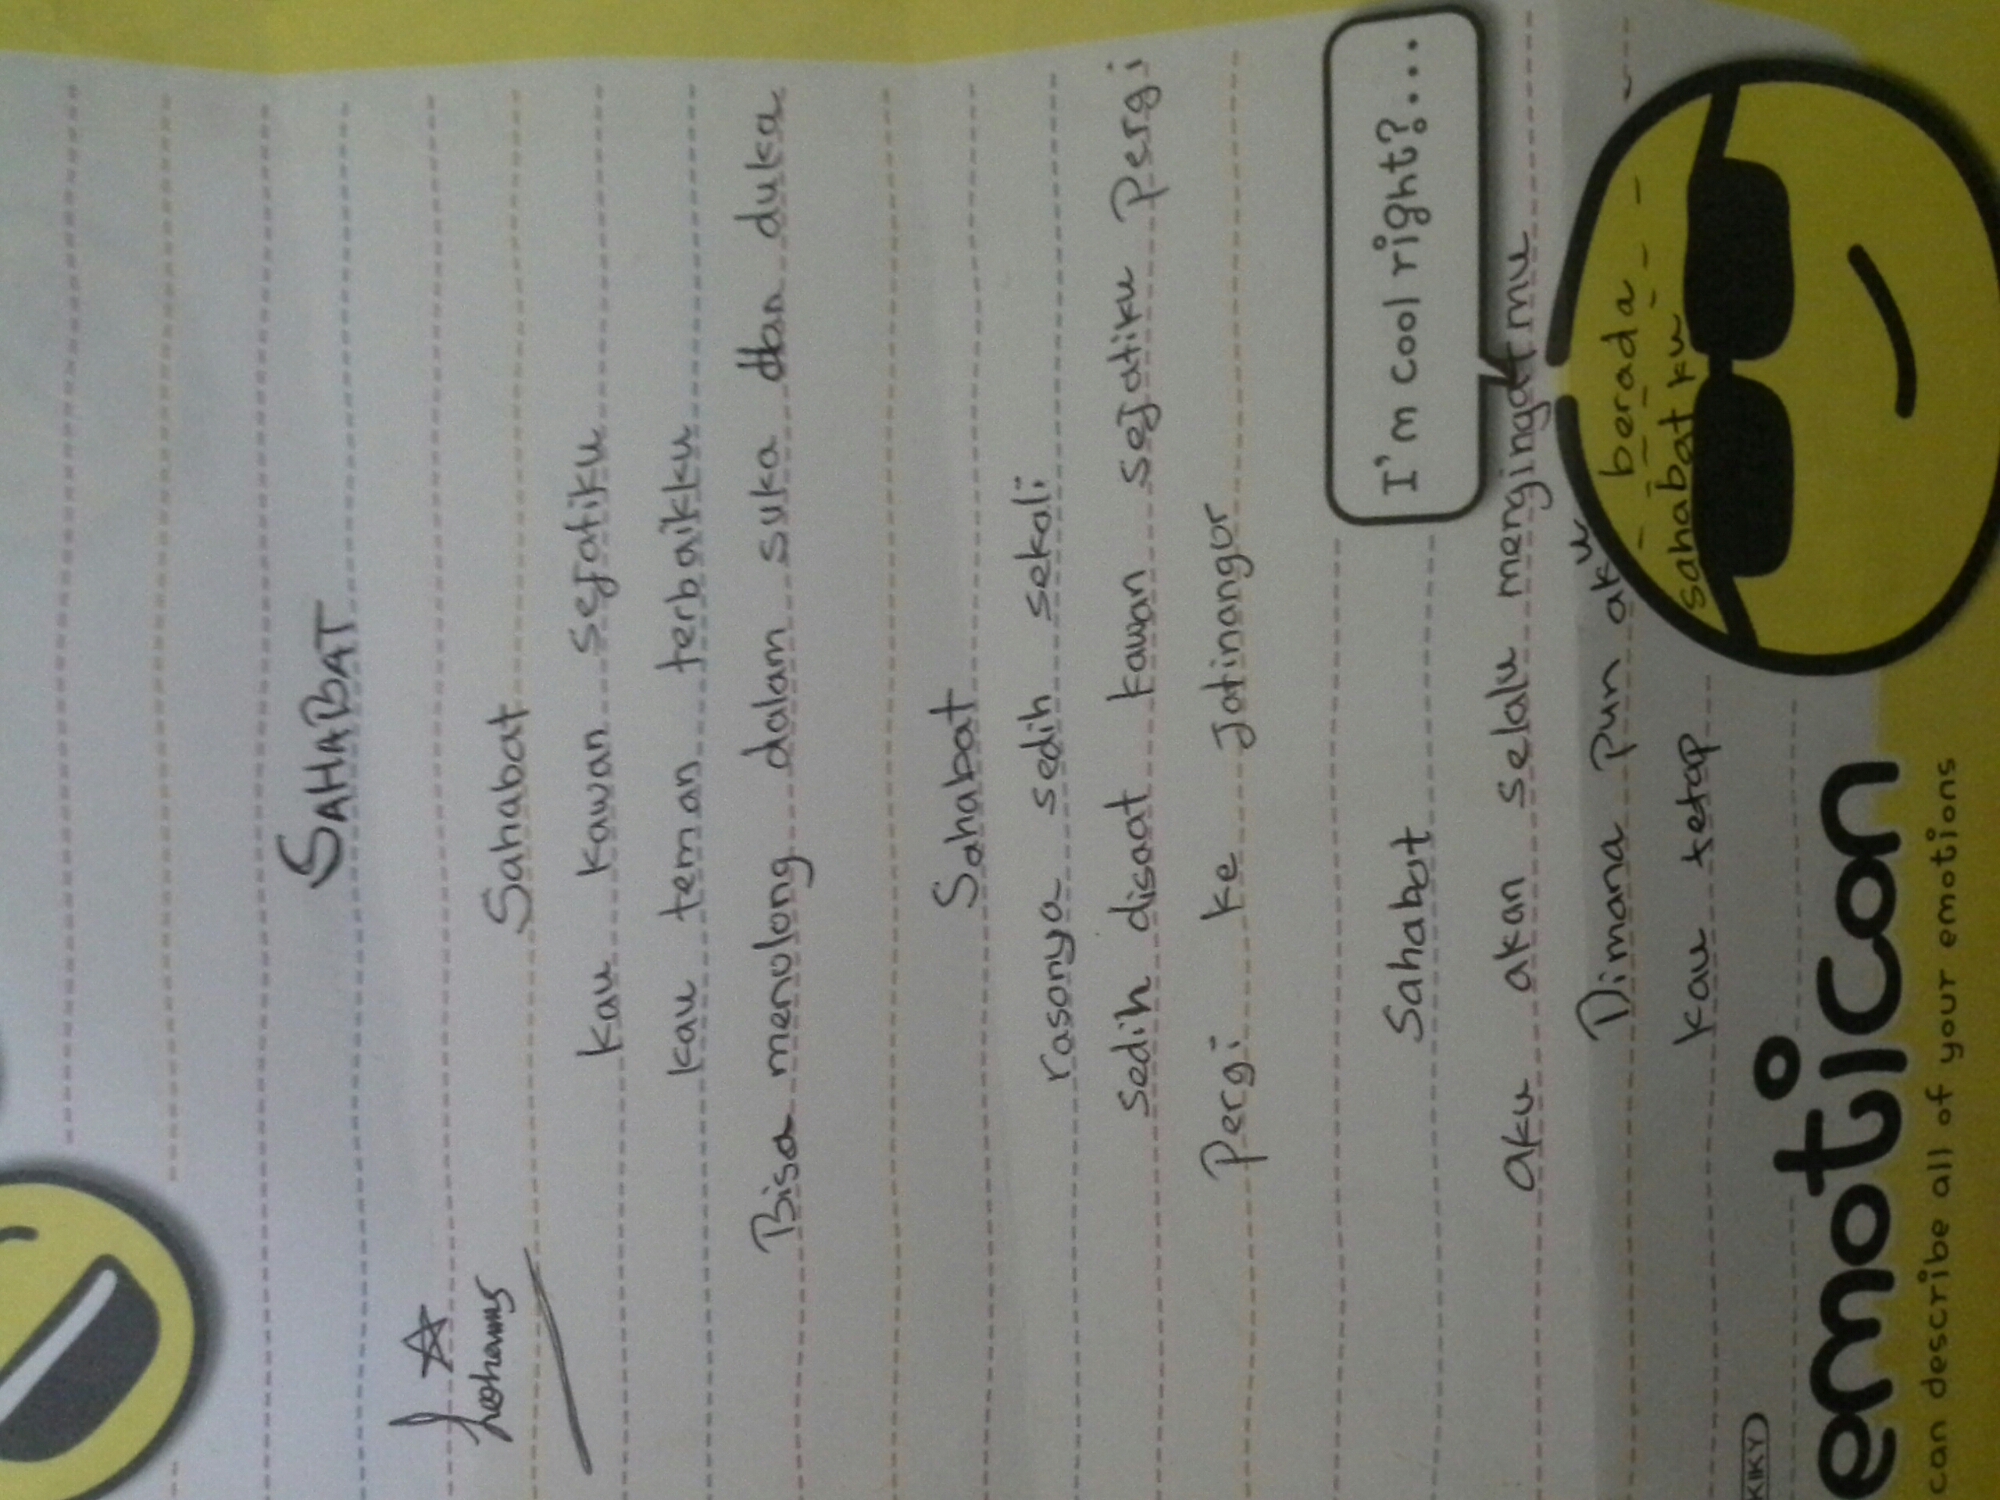 SAHABAT
Sahabat
kau kawan sejatiku
kau teman terbaikku
Bisa menolong dalam suka dan duka
Sahabat
rasanya sedih sekali
sedih disaat kawan sejatiku Pergi
Pergi ke Jatinangor
I'm cool right?...
Sahabat
aku akan selalu mengingatmu
Dimana pun aku berada
kau tetap sahabat ku
KIKY
emoticon
can describe all of your emotions